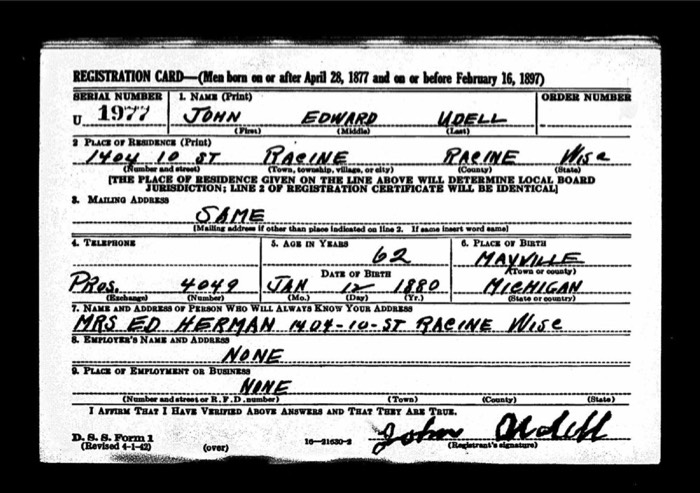 REGISTRATION CARD—(Men born on or after April 28, 1877 and on or before February 16, 1897)
SERIAL NUMBER 1. NAME (Print) ORDER NUMBER
U 1977 JOHN EDWARD UDELL
(First) (Middle) (Last)
2 PLACE OF RESIDENCE (Print)
1404 10 ST RACINE RACINE WISC
(Number and street) (Town, township, village, or city) (County) (State)
[THE PLACE OF RESIDENCE GIVEN ON THE LINE ABOVE WILL DETERMINE LOCAL BOARD
JURISDICTION; LINE 2 OF REGISTRATION CERTIFICATE WILL BE IDENTICAL]
3. MAILING ADDRESS
SAME
[Mailing address if other than place indicated on line 2. If same insert word same]
4. TELEPHONE 5. AGE IN YEARS 6. PLACE OF BIRTH
62 MAYVILLE
DATE OF BIRTH (Town or county)
PROS. 4049 JAN 12 1880 MICHIGAN
(Exchange) (Number) (Mo.) (Day) (Yr.) (State or country)
7. NAME AND ADDRESS OF PERSON WHO WILL ALWAYS KNOW YOUR ADDRESS
MRS ED HERMAN 1404-10-ST RACINE WISC
8. EMPLOYER'S NAME AND ADDRESS
NONE
9. PLACE OF EMPLOYMENT OR BUSINESS
NONE
(Number and street or R. F. D. number) (Town) (County) (State)
I AFFIRM THAT I HAVE VERIFIED ABOVE ANSWERS AND THAT THEY ARE TRUE.
John Udell
D. S. S. Form 1
(Revised 4-1-42) (over) 16—21630-2 (Registrant's signature)